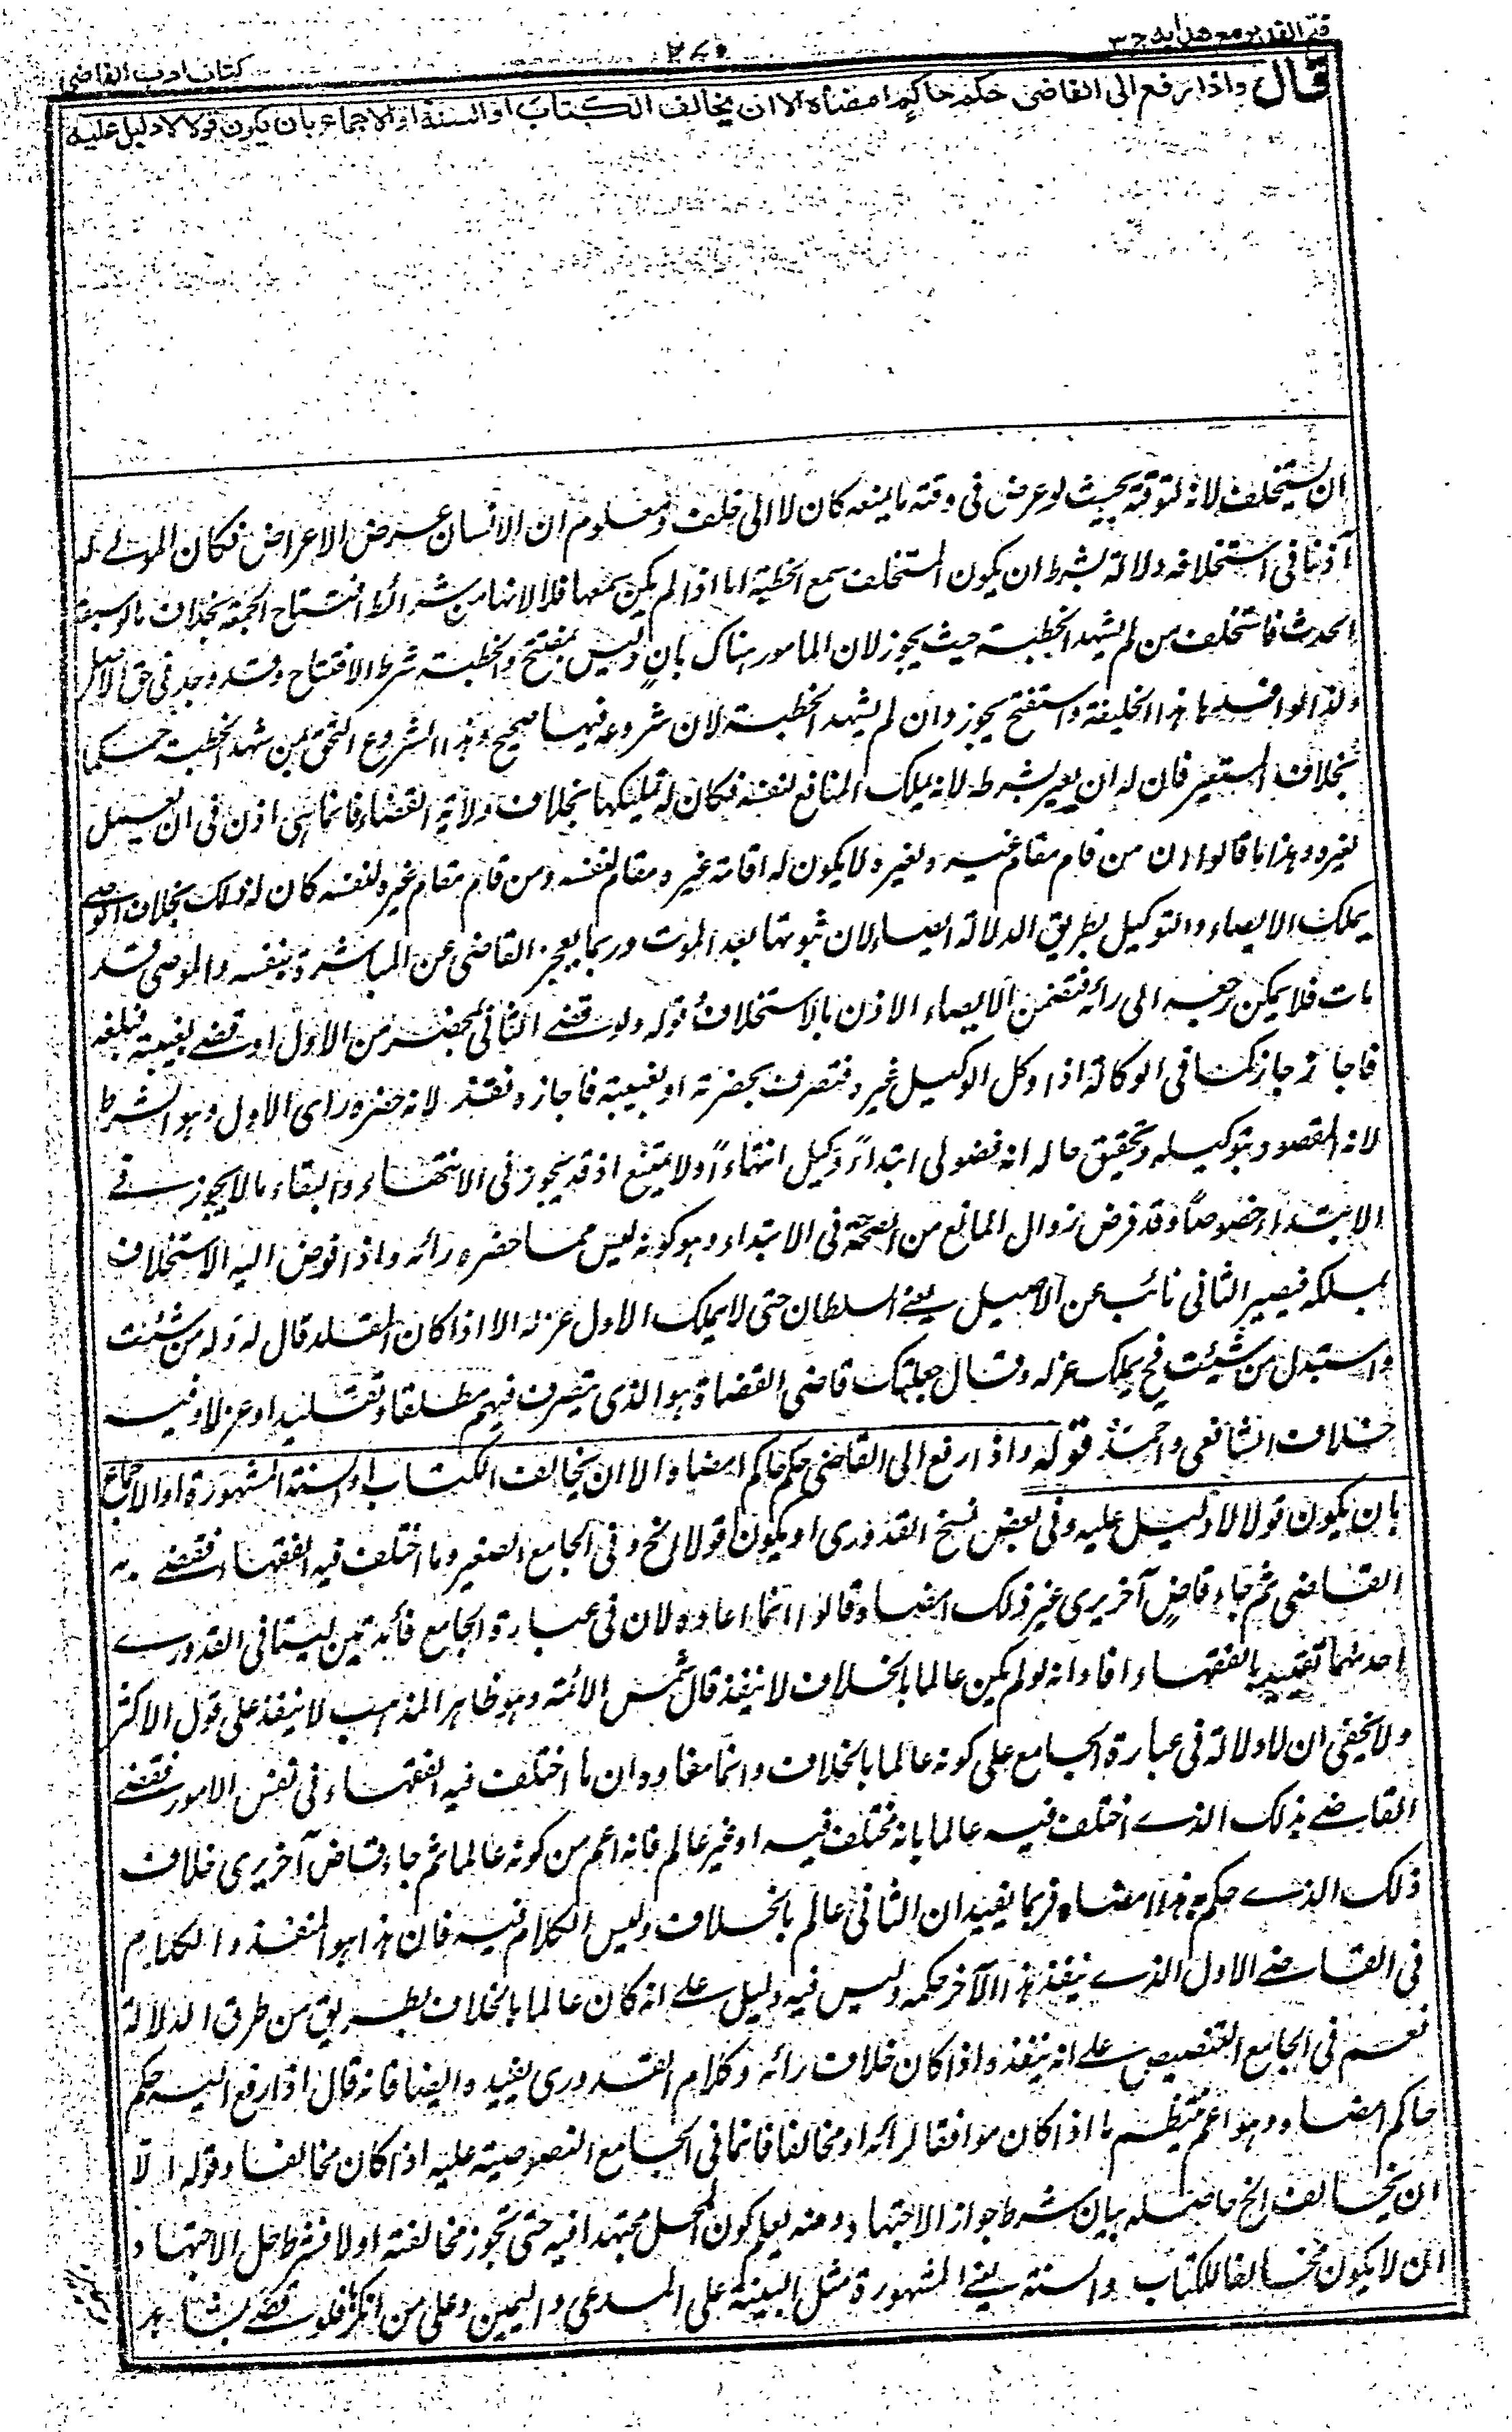 فتح القدير مع هدايه ج ٣
٢٧٠
كتاب ادب القاضى
قال واذا رفع الى القاضى حكم حاكم امضاه الا ان يخالف الكتاب او السنة او الاجماع بان يكون قولا لا دليل عليه
ان يستخلف لانه لتوقته بحيث لو عرض فى وقته ما يمنعه كان لا الى خلف ومعلوم ان الانسان عرض الاعراض فكان المولے له
آذنا فى استخلافه دلالة بشرط ان يكون المستخلف سمع الخطبة اما اذا لم يكن سمعها فلا لانها من شرائط افتتاح الجمعة بخلاف ما لو سبقه
الحدث فاستخلف من لم يشهد الخطبة حيث يجوز لان المامور هناك بانٍ وليس بمفتتح والخطبة شرط الافتتاح وقد وجد فى حق الاصل
ولذا لو افسدها هذا الخليفة واستفتح يجوز وان لم يشهد الخطبة لان شروعه فيها صحيح وهذا الشروع التحق بمن شهد الخطبة حكما
بخلاف المستعير فان له ان يعير بشرطه لانه يملك المنافع لنفسه فكان له تمليكها بخلاف ولاية القضاء فانما هى اذن فى ان يعمل
لغيره وهذا ما قالوا ان من قام مقام غيره لغيره لا يكون له اقامة غيره مقام نفسه ومن قام مقام غيره لنفسه كان له ذلك بخلاف الوصے
يملك الايصاء والتوكيل بطريق الدلالة ايضا لان ثبوتها بعد الموت وربما يعجز القاضى عن المباشرة بنفسه والموصى قد
مات فلا يمكن رجعه الى رائه فتضمن الايصاء الاذن بالاستخلاف قوله ولو قضے الثانى بمحضر من الاول او قضے بغيبته فبلغه
فاجازه جاز كما فى الوكالة اذا وكل الوكيل غيره فتصرف بحضرته او بغيبته فاجازه نفذ لانه حضره راى الاول وهو الشرط
لانه المقصود بتوكيله وتحقيق حاله انه فضولى ابتداءً وكيل انتهاءً ولا يمتنع اذ قد يجوز فى الانتهاء والبقاء ما لا يجوز فے
الابتداء خصوصاً وقد فرض زوال المانع من الصحة فى الابتداء وهو كونه ليس مما حضره رائه واذا فوض اليه الاستخلاف
يملكه فيصير الثانى نائب عن الاصيل يعنے السلطان حتى لا يملك الاول عزله الا اذا كان المقلد قال له وله من شئت
واستبدل من شئت فح يملك عزله وقال جعلتك قاضى القضاة هو الذى يتصرف فيهم مطلقا تقليدا وعزلا وفيه
خلاف الشافعى واحمد قوله واذا رفع الى القاضى حكم حاكم امضاه الا ان يخالف الكتاب او السنة المشهورة او الاجماع
بان يكون قولا لا دليل عليه وفى بعض نسخ القدورى او يكون قولا الخ وفى الجامع الصغير وما اختلف فيه الفقهاء فقضے به
القاضى ثم جاء قاضٍ آخر يرى غير ذلك امضاه قالوا انما اعاده لان فى عبارة الجامع فائدتين ليستا فى القدورے
احدٰهما تقييد بالفقهاء افاد انه لو لم يكن عالما بالخلاف لا ينفذ قال شمس الائمة وهو ظاهر المذهب لا ينفذ على قول الاكثر
ولا يخفى ان لا دلالة فى عبارة الجامع على كونه عالما بالخلاف وانما مفاده ان ما اختلف فيه الفقهاء فى نفس الامور فقضے
القاضے بذلك الذے اختلف فيه عالما بانه مختلف فيه او غير عالم فانه اعم من كونه عالما ثم جاء قاض آخر يرى خلاف
ذلك الذے حكم به هذا امضاه فربما يفيد ان الثانى عالم بالخلاف وليس الكلام فيه فان هذا هو المنفذ والكلام
فى القاضے الاول الذے ينفذ هذا الآخر حكمه وليس فيه دليل علے انه كان عالما بالخلاف بطريق من طرق الدلالة
نعم فى الجامع التنصيص علے انه ينفذه اذا كان خلاف رائه وكلام القدورى يفيده ايضا فانه قال اذا رفع اليه حكم
حاكم امضاه وهو اعم ينتظم ما اذا كان موافقا لرائه او مخالفا فانما فى الجامع النصوصية عليه اذا كان مخالفا وقوله الا
ان يخالف الخ حاصله بيان شرط جواز الاجتهاد ومنه يعلم كون المحل مجتهدا فيه حتى تجوز مخالفته اولا فشرط حل الاجتهاد
ان لا يكون مخالفا للكتاب والسنة يعنے المشهورة مثل البينة على المدعى واليمين وعلى من انكر فلو قضے بشاهد